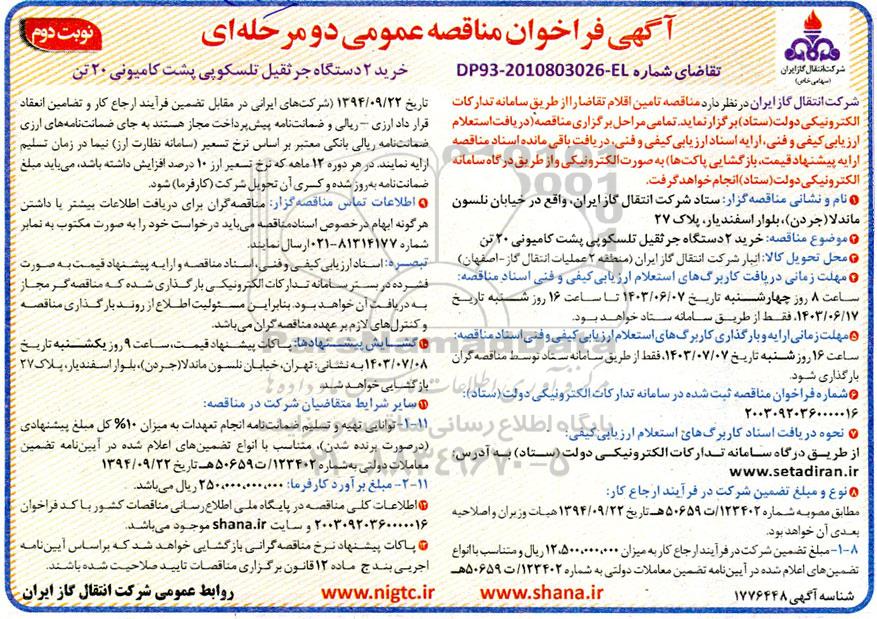 آگهی فراخوان مناقصه عمومی دو مرحله‌ای
نوبت دوم
شرکت انتقال گاز ایران
(سهامی خاص)
تقاضای شماره DP93-2010803026-EL
خرید ۲ دستگاه جرثقیل تلسکوپی پشت کامیونی ۲۰ تن
شرکت انتقال گاز ایران در نظر دارد مناقصه تامین اقلام تقاضا را از طریق سامانه تدارکات
الکترونیکی دولت (ستاد) برگزار نماید. تمامی مراحل برگزاری مناقصه (دریافت استعلام
ارزیابی کیفی و فنی، ارایه اسناد ارزیابی کیفی و فنی، دریافت باقی مانده اسناد مناقصه
ارایه پیشنهاد قیمت، بازگشایی پاکت‌ها) به صورت الکترونیکی و از طریق درگاه سامانه
الکترونیکی دولت (ستاد) انجام خواهد گرفت.
۱ نام و نشانی مناقصه‌گزار: ستاد شرکت انتقال گاز ایران، واقع در خیابان نلسون
ماندلا (جردن)، بلوار اسفندیار، پلاک ۲۷
۲ موضوع مناقصه: خرید ۲ دستگاه جرثقیل تلسکوپی پشت کامیونی ۲۰ تن
۳ محل تحویل کالا: انبار شرکت انتقال گاز ایران (منطقه ۲ عملیات انتقال گاز-اصفهان)
۴ مهلت زمانی دریافت کاربرگ‌های استعلام ارزیابی کیفی و فنی اسناد مناقصه:
ساعت ۸ روز چهارشنبه تاریخ ۱۴۰۳/۰۶/۰۷ تا ساعت ۱۶ روز شنبه تاریخ
۱۴۰۳/۰۶/۱۷، فقط از طریق سامانه ستاد خواهد بود.
۵ مهلت زمانی ارایه و بارگذاری کاربرگ‌های استعلام ارزیابی کیفی و فنی اسناد مناقصه:
ساعت ۱۶ روز شنبه تاریخ ۱۴۰۳/۰۷/۰۷، فقط از طریق سامانه ستاد توسط مناقصه‌گران
بارگذاری شود.
۶ شماره فراخوان مناقصه ثبت شده در سامانه تدارکات الکترونیکی دولت (ستاد):
۲۰۰۳۰۹۲۰۳۶۰۰۰۰۱۶
۷ نحوه دریافت اسناد کاربرگ‌های استعلام ارزیابی کیفی:
از طریق درگاه سامانه تدارکات الکترونیکی دولت (ستاد) به آدرس:
www.setadiran.ir
۸ نوع و مبلغ تضمین شرکت در فرآیند ارجاع کار:
مطابق مصوبه شماره ۱۲۳۴۰۲/ت ۵۰۶۵۹ هـ تاریخ ۱۳۹۴/۰۹/۲۲ هیات وزیران و اصلاحیه
بعدی آن خواهد بود.
۸-۱- مبلغ تضمین شرکت در فرآیند ارجاع کار به میزان ۱۲,۵۰۰,۰۰۰,۰۰۰ ریال و متناسب با انواع
تضمین‌های اعلام شده در آیین‌نامه تضمین معاملات دولتی به شماره ۱۲۳۴۰۲/ت ۵۰۶۵۹هـ
تاریخ ۱۳۹۴/۰۹/۲۲ (شرکت‌های ایرانی در مقابل تضمین فرآیند ارجاع کار و تضامین انعقاد
قرارداد ارزی – ریالی و ضمانت‌نامه پیش‌پرداخت مجاز هستند به جای ضمانت‌نامه‌های ارزی
ضمانت‌نامه ریالی بانکی معتبر بر اساس نرخ تسعیر (سامانه نظارت ارز) نیما در زمان تسلیم
ارایه نمایند. در هر دوره ۱۲ ماهه که نرخ تسعیر ارز ۱۰ درصد افزایش داشته باشد، می‌باید مبلغ
ضمانت‌نامه به روز شده و کسری آن تحویل شرکت (کارفرما) شود.
۹ اطلاعات تماس مناقصه‌گزار: مناقصه‌گران برای دریافت اطلاعات بیشتر یا داشتن
هرگونه ابهام در خصوص اسناد مناقصه می‌باید درخواست خود را به صورت مکتوب به نمابر
شماره ۸۱۳۱۴۱۷۷-۰۲۱ ارسال نمایند.
تبصره: اسناد ارزیابی کیفی و فنی، اسناد مناقصه و ارایه پیشنهاد قیمت به صورت
فشرده در بستر سامانه تدارکات الکترونیکی بارگذاری شده که مناقصه‌گر مجاز
به دریافت آن خواهد بود. بنابراین مسئولیت اطلاع از روند بارگذاری مناقصه
و کنترل‌های لازم بر عهده مناقصه‌گران می‌باشد.
۱۰ گشایش پیشنهادها: پاکات پیشنهاد قیمت، ساعت ۹ روز یکشنبه تاریخ
۱۴۰۳/۰۷/۰۸ به نشانی: تهران، خیابان نلسون ماندلا (جردن)، بلوار اسفندیار، پلاک ۲۷
بازگشایی خواهد شد.
۱۱ سایر شرایط متقاضیان شرکت در مناقصه:
۱۱-۱- توانایی تهیه و تسلیم ضمانت‌نامه انجام تعهدات به میزان ۱۰% کل مبلغ پیشنهادی
(درصورت برنده شدن)، متناسب با انواع تضمین‌های اعلام شده در آیین‌نامه تضمین
معاملات دولتی به شماره ۱۲۳۴۰۲/ت ۵۰۶۵۹ هـ تاریخ ۱۳۹۴/۰۹/۲۲
۱۱-۲- مبلغ برآورد کارفرما: ۲۵۰,۰۰۰,۰۰۰,۰۰۰ ریال می‌باشد.
۱۲ اطلاعات کلی مناقصه در پایگاه ملی اطلاع رسانی مناقصات کشور با کد فراخوان
۲۰۰۳۰۹۲۰۳۶۰۰۰۰۱۶ و سایت shana.ir موجود می‌باشد.
۱۳ پاکات پیشنهاد نرخ مناقصه‌گرانی بازگشایی خواهد شد که براساس آیین‌نامه
اجرایی بند ج ماده ۱۲ قانون برگزاری مناقصات تایید صلاحیت شده باشند.
شناسه آگهی ۱۷۷۶۴۴۸
www.shana.ir
www.nigtc.ir
روابط عمومی شرکت انتقال گاز ایران
ParsNamadData
پایگاه اطلاع رسانی
۰۲۱-۸۸۳۴۹۶۷۰-۵